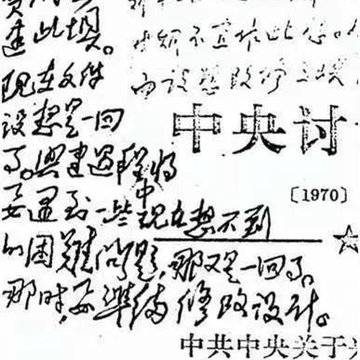 建此坝。
现在文件
设想是一回
事。兴建过程中将
要遇到一些现在想不到
的困难问题,那又是一回事。
那时,要准备修改设计。
不宜作此想
中央讨
〔1970〕
中共中央关于